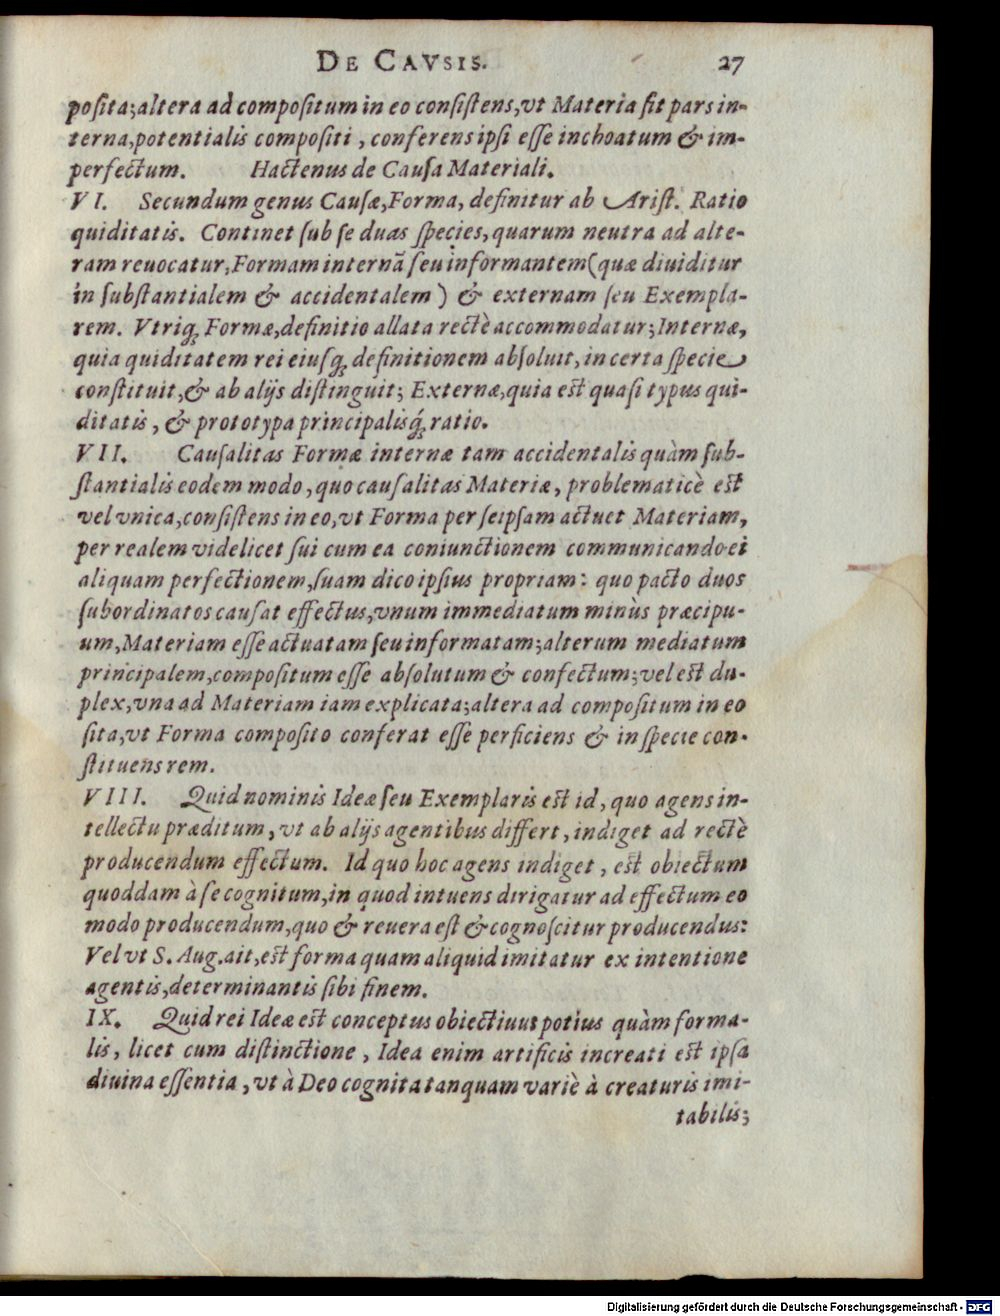 DE CAVSIS. 27
posita;altera ad compositum in eo consistens,vt Materia sit pars in-
terna,potentialis compositi , conferens ipsi esse inchoatum & im-
perfectum. Hactenus de Causa Materiali.
VI. Secundum genus Causæ,Forma, definitur ab Arist. Ratio
quiditatis. Continet sub se duas species,quarum neutra ad alte-
ram reuocatur,Formam internã seu informantem(quæ diuiditur
in substantialem & accidentalem ) & externam seu Exempla-
rem. Vtriq; Formæ,definitio allata rectè accommodatur;Internæ,
quia quiditatem rei eiusq; definitionem absoluit,in certa specie
constituit,& ab alijs distinguit; Externæ,quia est quasi typus qui-
ditatis , & prototypa principalisq́; ratio.
VII. Causalitas Formæ internæ tam accidentalis quàm sub-
stantialis eodem modo , quo causalitas Materiæ , problematicè est
vel vnica,consistens in eo,vt Forma per seipsam actuet Materiam,
per realem videlicet sui cum ea coniunctionem communicando ei
aliquam perfectionem,suam dico ipsius propriam: quo pacto duos
subordinatos causat effectus,vnum immediatum minùs præcipu-
um,Materiam esse actuatam seu informatam;alterum mediatum
principalem,compositum esse absolutum & confectum;vel est du-
plex,vna ad Materiam iam explicata;altera ad compositum in eo
sita,vt Forma composito conferat esse perficiens & in specie con-
stituens rem.
VIII. Quid nominis Ideæ seu Exemplaris est id , quo agens in-
tellectu præditum , vt ab alijs agentibus differt , indiget ad rectè
producendum effectum. Id quo hoc agens indiget , est obiectum
quoddam à se cognitum,in quod intuens dirigatur ad effectum eo
modo producendum,quo & reuera est & cognoscitur producendus:
Vel vt S. Aug.ait,est forma quam aliquid imitatur ex intentione
agentis,determinantis sibi finem.
IX. Quid rei Ideæ est conceptus obiectiuus potius quàm forma-
lis , licet cum distinctione , Idea enim artificis increati est ipsa
diuina essentia , vt à Deo cognita tanquam variè à creaturis imi-
tabilis;
Digitalisierung gefördert durch die Deutsche Forschungsgemeinschaft - DFG